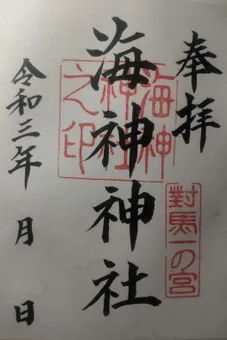 奉拝
對馬一の宮
海神神社
海神
神社
之印
令和三年 月 日